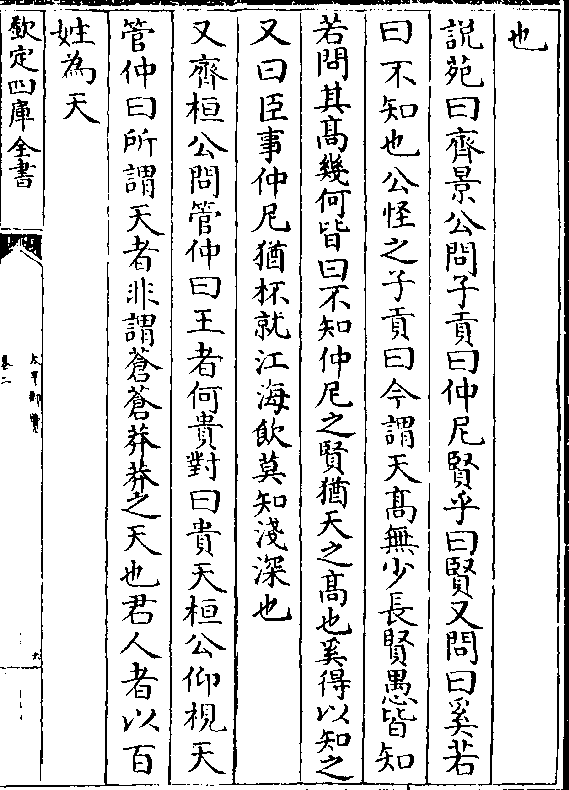 也
說苑曰齊景公問子貢曰仲尼賢乎曰賢又問曰奚若
曰不知也公怪之子貢曰今謂天髙無少長賢愚皆知
若問其髙幾何皆曰不知仲尼之賢猶天之髙也奚得以知之
又曰臣事仲尼猶杯就江海飲莫知淺深也
又齊桓公問管仲曰王者何貴對曰貴天桓公仰視天
管仲曰所謂天者非謂蒼蒼莽莽之天也君人者以百
姓為天
欽定四庫全書
太平御覽
卷二